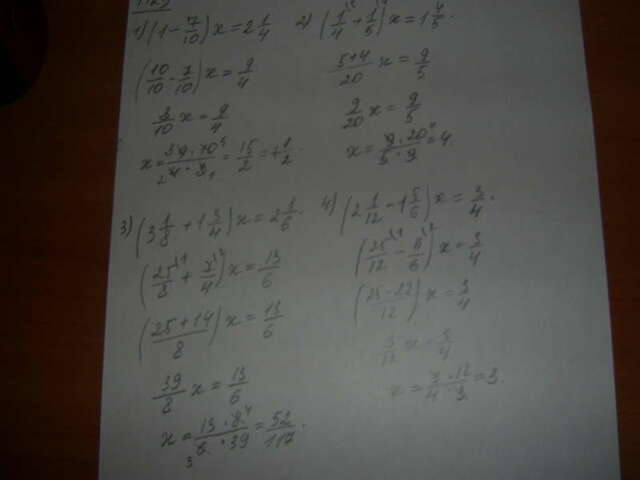 1) (1 - 7/10) x = 2 1/4
(10/10 - 7/10) x = 9/4
3/10 x = 9/4
x = 9·10/4·3 = 15/2 = 7 1/2.
2) (1/4 + 1/5) x = 1 4/5.
(5+4)/20 x = 9/5
9/20 x = 9/5
x = 9·20/5·9 = 4.
3) (3 1/8 + 1 3/4) x = 2 1/6.
(25/8 + 7/4) x = 13/6
((25+14)/8) x = 13/6
39/8 x = 13/6
x = 13·8/6·39 = 52/117.
4) (2 1/12 - 1 5/6) x = 3/4.
(25/12 - 11/6) x = 3/4
((25-22)/12) x = 3/4
3/12 x = 3/4
x = 3/4 · 12/3 = 3.